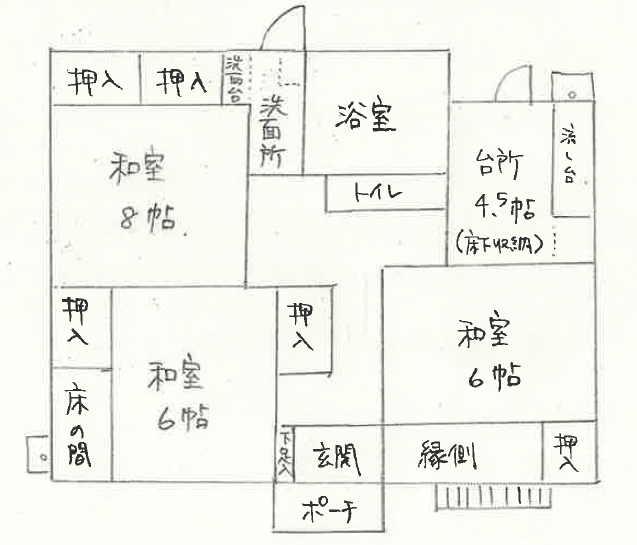 押入
押入
洗面台
洗面所
浴室
台所
4.5帖
(床下収納)
流し台
和室
8帖
トイレ
押入
押入
和室
6帖
和室
6帖
床の間
下足入
玄関
縁側
押入
ポーチ